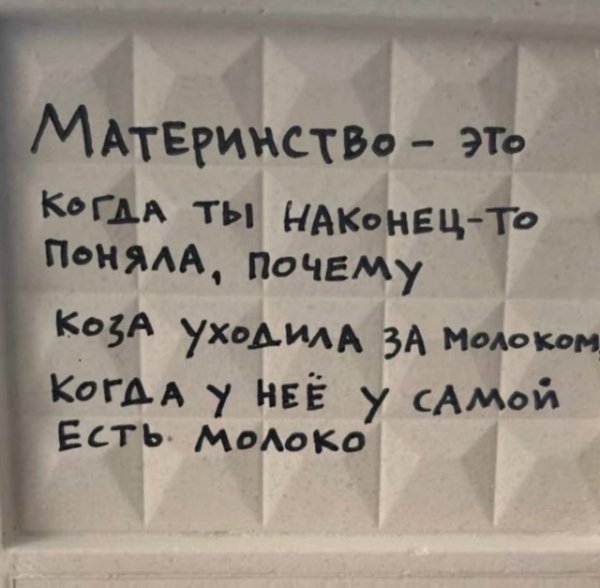 Материнство - это
когда ты наконец-то
поняла, почему
коза уходила за молоком,
когда у неё у самой
есть молоко